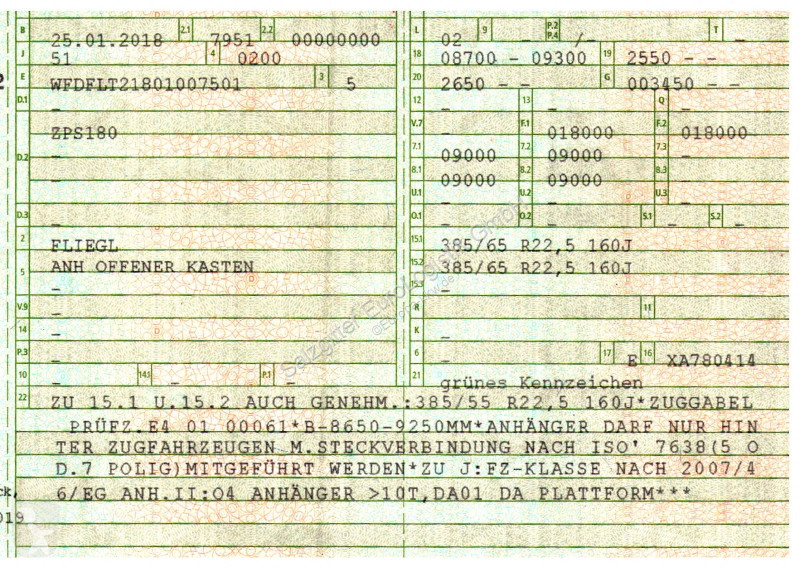 B 25.01.2018 2.1 7951 2.2 00000000
J 51 4 0200
E WFDFLT21801007501 3 5
D.1 –
ZPS180
D.2 –
–
D.3 –
2 FLIEGL
5 ANH OFFENER KASTEN
–
V.9 –
14 –
P.3
10 – 14.1 – P.1 –
L 02 9 – P.2 P.4 –/– T –
18 08700 – 09300 19 2550 – –
20 2650 – – G 003450 – –
12 – 13 – Q –
V.7 – F.1 018000 F.2 018000
7.1 09000 7.2 09000 7.3 –
8.1 09000 8.2 09000 8.3 –
U.1 – U.2 – U.3 –
O.1 – O.2 – S.1 – S.2 –
15.1 385/65 R22,5 160J
15.2 385/65 R22,5 160J
15.3 –
R – 11 –
K –
6 – 17 E 16 XA780414
21 grünes Kennzeichen
22 ZU 15.1 U.15.2 AUCH GENEHM.:385/55 R22,5 160J*ZUGGABEL
PRÜFZ.E4 01 00061*B-8650-9250MM*ANHÄNGER DARF NUR HIN
TER ZUGFAHRZEUGEN M.STECKVERBINDUNG NACH ISO' 7638(5 O
D.7 POLIG)MITGEFÜHRT WERDEN*ZU J:FZ-KLASSE NACH 2007/4
6/EG ANH.II:O4 ANHÄNGER >10T,DA01 DA PLATTFORM***
ck,
019